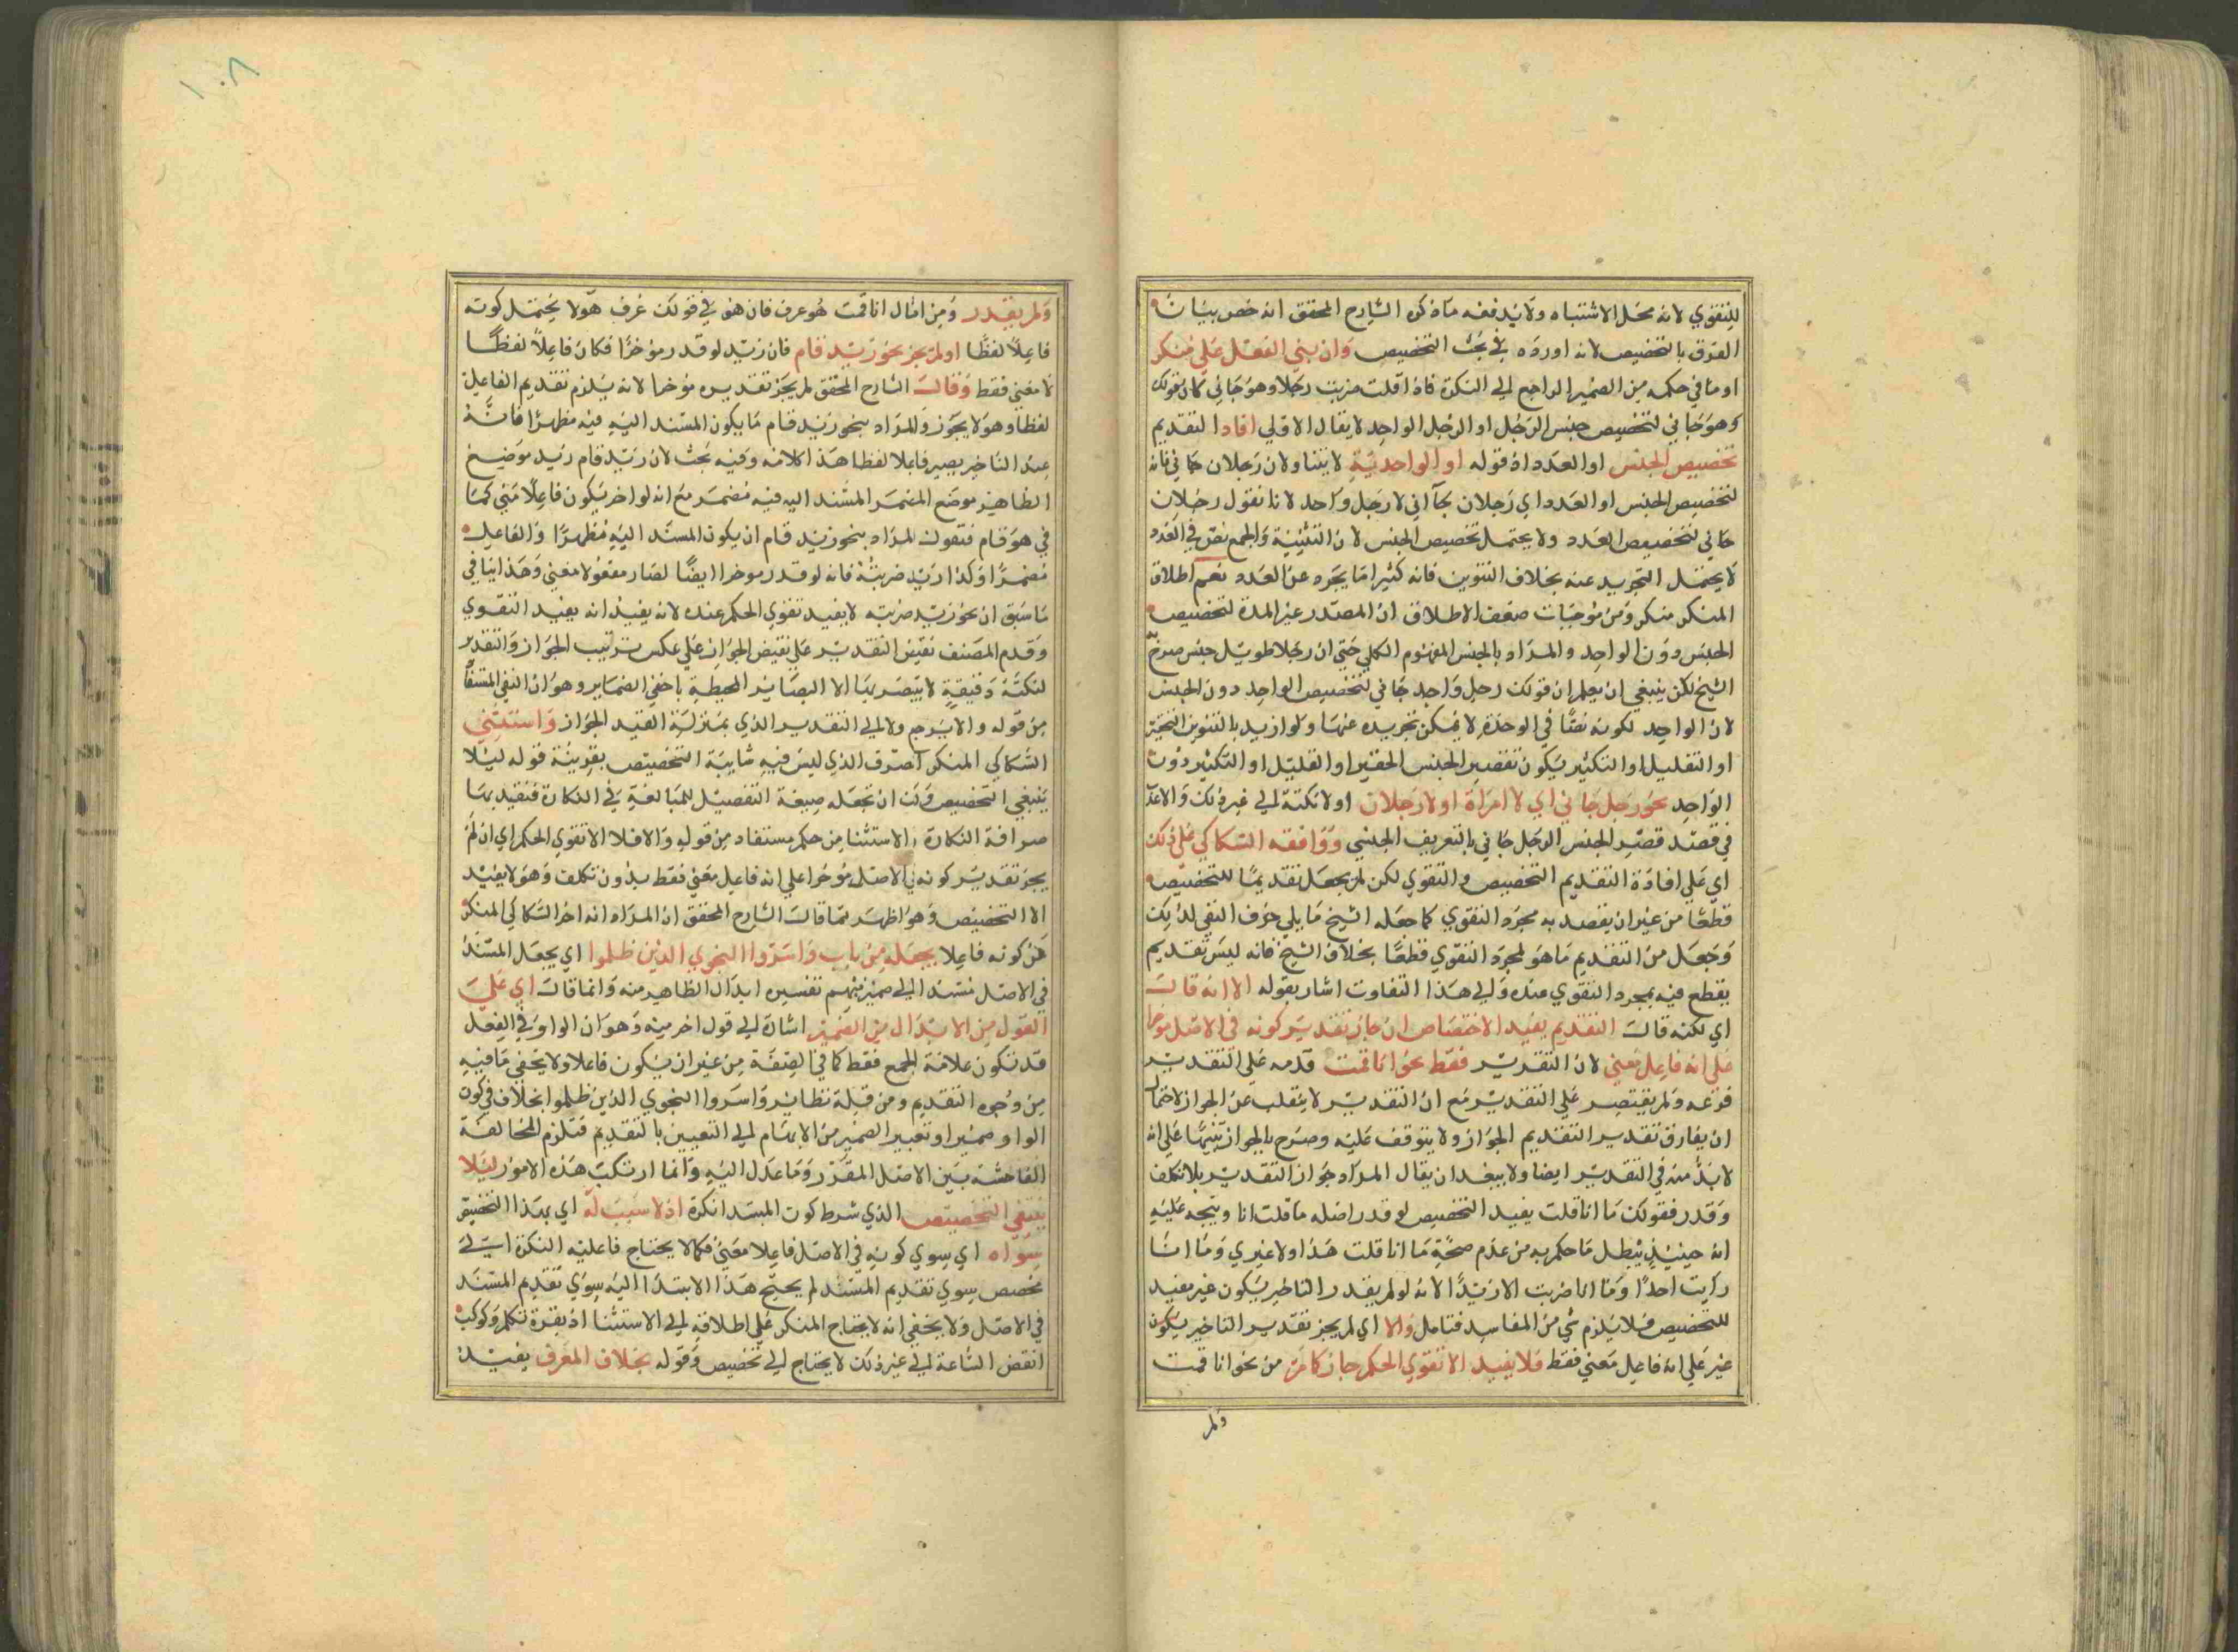 للتقوي لانه محل الاشتباه ولا يدفعه ما ذكره الشارح المحقق انه خص بيان
الفرق بالتخصيص لانه اورده في بحث التخصيص وان بني الفعل علي منكر
او ما في حكمه من الضمير الراجع الي النكرة فاذا قلت ضربت رجلا وهو جاني كان قولك
وهو جاني لتخصيص جنس الرجل او الرجل الواحد لا يقال الاولي افاد التقديم
تخصيص الجنس او العدد اذ قوله او الواحدية لا يتناول ان رجلان جاني فانه
لتخصيص الجنس او العدد اي رجلان جآاني لا رجل واحد لانا نقول رجلان
جاني لتخصيص العدد ولا يحتمل تخصيص الجنس لان التثنية والجمع نص في العدد
لا يحتمل التجريد عنه بخلاف التنوين فانه كثيرا ما يجرد عن العدد نعم اطلاق
المنكر منكر ومن موجبات ضعف الاطلاق ان المصدر عير المدة لتخصيص
الجنس دون الواحد والمراد بالجنس المفهوم الكلي حتي ان رجلا طويل جنس صرح به
الشيخ لكن ينبغي ان يعلم ان قولك رجل واحد جاني لتخصيص الواحد دون الجنس
لان الواحد لكونه نصا في الوحدة لا يمكن تجريده عنها ولو اريد بالتنوين التحقير
او التقليل او التكثير يكون تقصير الجنس الحقير او القليل او التكثير دون
الواحد نحو رجل جاني اي لا امراة او لا رجلان او لا نكتة الي غير ذلك والاعد
في قصد قصر الجنس الرجل جاني بالتعريف الجنسي ووافقه السكاكي علي ذلك
اي علي افادة التقديم التخصيص والتقوي لكن لم يجعل تقديما للتخصيص
قطعا من غير ان يقصد به مجرد التقوي كما جعله الشيخ ما يلي حرف النفي لذلك
وجعل من التقديم ما هو لمجرد التقوي قطعا بخلاف الشيخ فانه ليس تقديم
يقطع فيه بمجرد التقوي عنده والي هذا التفاوت اشار بقوله الا انه قال
اي لكنه قال التقديم يفيد الاختصاص ان جاز تقدير كونه في الاصل موخرا
علي انه فاعل معني لان التقدير فقط نحو انا قمت قدمه علي التقدير
فرعه ولم يقتصر علي التقدير مع ان التقدير لا ينقلب عن الجواز لاحتمال
ان يفارق تقدير التقديم الجواز ولا يتوقف عليه وصرح بالجواز تنبيها علي انه
لا بد منه في التقدير ايضا ولا يبعد ان يقال المراد جواز التقدير بلا تكلف
وقدر فقولك ما انا قلت يفيد التخصيص لو قدر اصله ما قلت انا ويتجه عليه
انه حينيذ يبطل ما حكم به من عدم صحة ما انا قلت هذا ولا غيري وما انا
رايت احدا وما انا ضربت الا زيدا لانه لو لم يقدر التاخير يكون غير مفيد
للتخصيص فلا يلزم شي من المفاسد فتامل والا اي لم يجز تقدير التاخير يكون
غير علي انه فاعل معني فقط فلا يفيد الا تقوي الحكم جاز كما مر من نحو انا قمت
ولم
١٠٨
ولم يقدر ومن امثال انا قمت هو عرف فان هو في قولك عرف هو لا يحتمل كونه
فاعلا لفظا او لم يجز نحو زيد قام فان زيد لو قدر موخرا فكان فاعلا لفظا
لا معني فقط وقال الشارح المحقق لم يجز تقديره موخرا لانه يلزم تقديم الفاعل
لفظا وهو لا يجوز والمراد بنحو زيد قام ما يكون المسند اليه فيه مظهرا فانه
عند التاخير يصير فاعلا لفظا هذا كلامه وفيه بحث لان زيد قام زيد موضع
الظاهر موضع المضمر المسند اليه فيه مضمر مع انه لو اخر يكون فاعلا معني كما
في هو قام فتقول المراد بنحو زيد قام ان يكون المسند اليه مظهرا والفاعل
مضمرا وكذا زيد ضربته فانه لو قدر موخرا ايضا لصار مفعولا معني وهذا ينافي
ما سبق ان نحو زيد ضربته لا يفيد تقوي الحكم عنده لانه يفيد انه يفيد التقوي
وقدم المصنف نقيض التقدير علي نقيض الجواز علي عكس ترتيب الجواز والتقدير
لنكتة دقيقة لا يبصر بها الا البصاير المحيطة باخفي الضماير وهو ان النفي المستفاد
من قوله والا يرجع ولا الي التقدير الذي بمنزلة القيد الجواز واستثني
السكاكي المنكر الصرف الذي ليس فيه شايبة التخصيص بقرينة قوله ليلا
ينبغي التخصيص ولك ان تجعله صيغة التفصيل للمبالغة في النكارة فتفيد بها
صرافة النكارة والاستثنا من حكم مستفاد من قوله والا فلا الا تقوي الحكم اي ان لم
يجز تقدير كونه في الاصل موخرا علي انه فاعل معني فقط بدون تكلف وهو لا يفيد
الا التخصيص وهو اظهر مما قال الشارح المحقق ان المراد انه اخر السكاكي المنكر
عن كونه فاعلا بجعله من باب واسروا النجوي الذين ظلموا اي يجعل المسند
في الاصل مسندا الي ضمير مبهم تفسيره ابدال الظاهر منه وانما قال اي علي
القول من الابدال من الضمير اشارة الي قول اخر فيه وهو ان الواو في الفعل
قد تكون علامة الجمع فقط كما في الصفة من غير ان يكون فاعلا ولا يخفي ما فيه
من وجوه التقديم ومن قلة نظاير واسروا النجوي الذين ظلموا بخلاف في كون
الواو ضميرا وتعبير الضمير من الابهام الي التعيين بالتقديم فتلزم المخالفة
الفاحشة بين الاصل المقرر وما عدل اليه وانما ارتكب هذه الامور ليلا
ينتفي التخصيص الذي شرط كون المبتدا نكرة اذ لا سبب له اي بهذا التخصيص
سواه اي سوي كونه في الاصل فاعلا معني فكما لا يحتاج فاعليه النكرة الي
مخصص سوي تقديم المسند لم يحتج هذا الابتدا اليه سوي تقديم المسند
في الاصل ولا يخفي انه لا يحتاج المنكر علي اطلاقه الي الاستثنا اذ بقرة تكلم وكوكب
انقض الساعة الي غير ذلك لا يحتاج الي تخصيص وقوله بخلاف المعرف يفيد